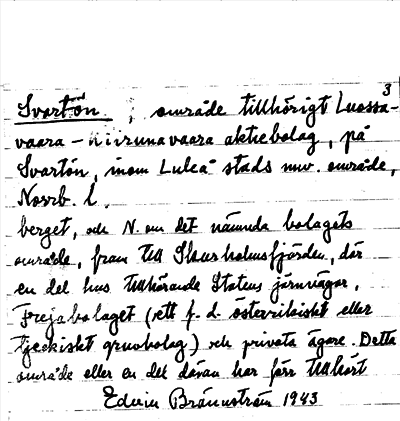 3
Svartön ; område tillhörigt Luossa-
vaara-Kiirunavaara aktiebolag, på
Svartön, inom Luleå stads nuv. område,
Norrb. l.
berget, och N. om det nämnda bolagets
område, fram till Skurholmsfjärden, där
en del hus tillhörande Statens järnvägar,
Frejabolaget (ett f.d. österrikiskt eller
tjeckiskt gruvbolag) och privata ägare. Detta
område eller en del därav har förr tillhört
Edvin Brännström 1943